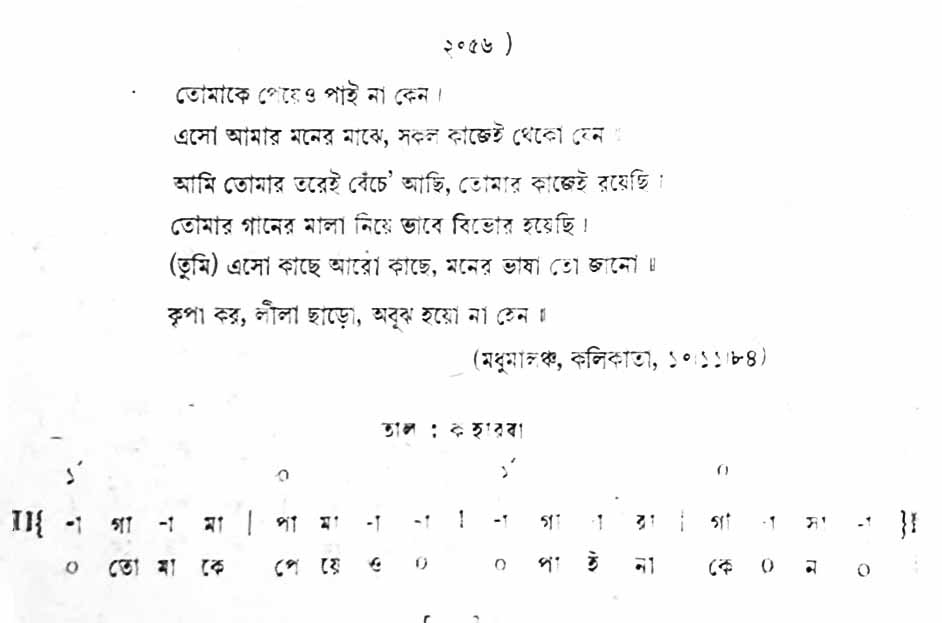 ২০৫৬ )
তোমাকে পেয়েও পাই না কেন।
এসো আমার মনের মাঝে, সকল কাজেই থেকো যেন।
আমি তোমার তরেই বেঁচে' আছি, তোমার কাজেই রয়েছি।
তোমার গানের মালা নিয়ে ভাবে বিভোর হয়েছি।
(তুমি) এসো কাছে আরো কাছে, মনের ভাষা তো জানো ॥
কৃপা কর, লীলা ছাড়ো, অবুঝ হয়ো না হেন ॥
(মধুমালঞ্চ, কলিকাতা, ১০।১১।৮৪)
তাল : কাহারবা
১´ ০ ১´ ০
II{ -া গা -া মা | পা মা -া -া | -া গা -া রা | গা -া সা -া }I
০ তো মা কে পে য়ে ও ০ ০ পা ই না কে ০ ন ০